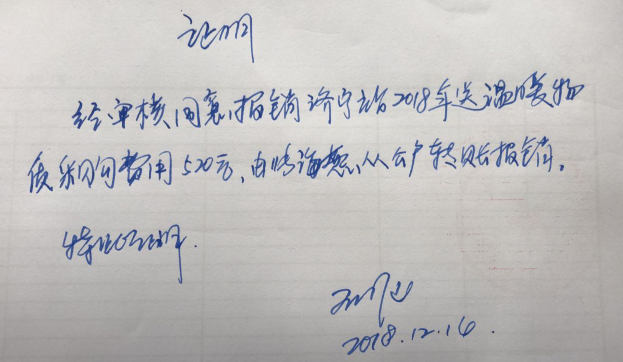 证明
经审核同意报销济宁站2018年送温暖物
资采购费用520元,由 从公户转账报销。
特此证明.
2018.12.14.